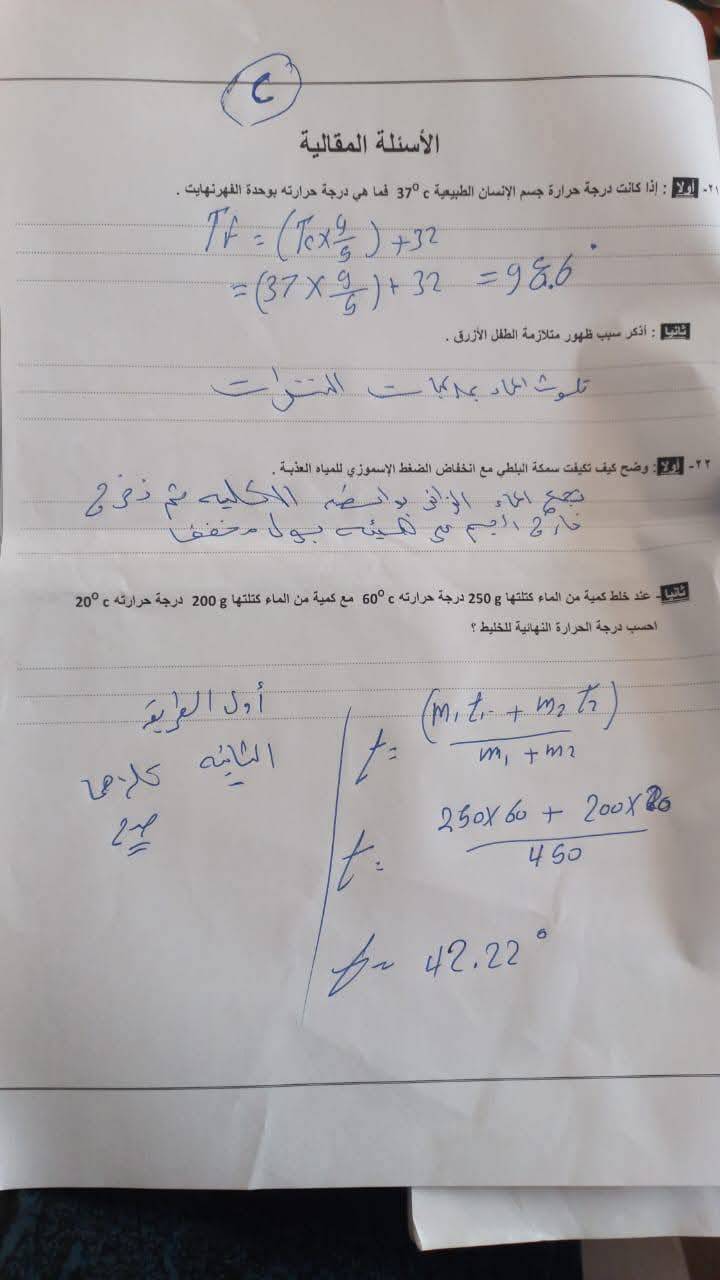 C
الأسئلة المقالية
٢١- أولا : إذا كانت درجة حرارة جسم الإنسان الطبيعية 37⁰ c فما هي درجة حرارته بوحدة الفهرنهايت .
Tf = (Tc × 9/5) + 32
= (37 × 9/5) + 32 = 98.6°
ثانيا : أذكر سبب ظهور متلازمة الطفل الأزرق .
تلوث الماء بمركبات النترات
٢٢- أولا : وضح كيف تكيفت سمكة البلطي مع انخفاض الضغط الإسموزي للمياه العذبة .
تجمع الماء الزائد بواسطه الكليه ثم تخرج
خارج الجسم على هيئه بول مخفف
ثانيا - عند خلط كمية من الماء كتلتها 250 g درجة حرارته 60⁰ c مع كمية من الماء كتلتها 200 g درجة حرارته 20⁰ c
احسب درجة الحرارة النهائية للخليط ؟
t = (m₁ t₁ + m₂ t₂) / m₁ + m₂
t = 250 × 60 + 200 × 20 / 450
t = 42.22°
أول الطريقه
الثانيه كلاهما
صح